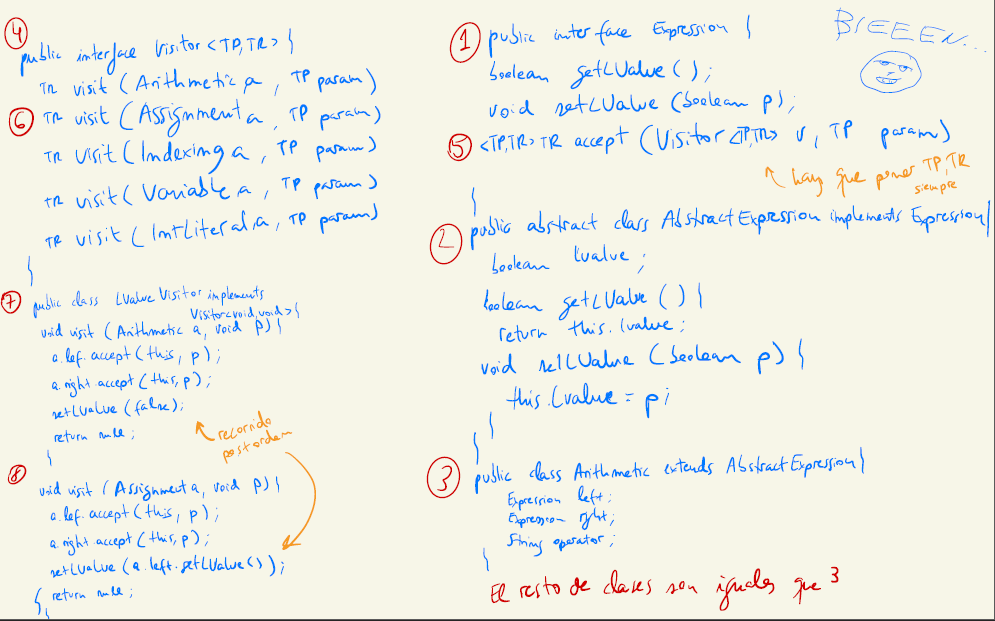 ④
public interface Visitor <TP,TR> {
TR visit (Arithmetic a , TP param)
⑥ TR visit (Assignment a , TP param)
TR visit (Indexing a , TP param)
TR visit (Variable a , TP param)
TR visit (IntLiteral a , TP param)
}
⑦ public class LValueVisitor implements
Visitor<void,void>{
void visit (Arithmetic a, void p) {
a.lef.accept (this, p);
a.right.accept (this, p);
setLValue (false);
return null;
}
recorrido
postorden
⑧
void visit (Assignment a, void p) {
a.lef.accept (this, p);
a.right.accept (this, p);
setLValue (a.left.getLValue());
return null;
}
}
BIEEEN...
① public interface Expression {
boolean getLValue ();
void setLValue (boolean p);
⑤ <TP,TR> TR accept (Visitor <TP,TR> v , TP param)
hay que poner TP,TR
siempre
}
② public abstract class AbstractExpression implements Expression{
boolean lvalue ;
boolean getLValue () {
return this.lvalue;
void setLValue (boolean p) {
this.lvalue = p;
}
}
③ public class Arithmetic extends AbstractExpression{
Expression left;
Expression right;
String operator;
}
El resto de clases son iguales que 3